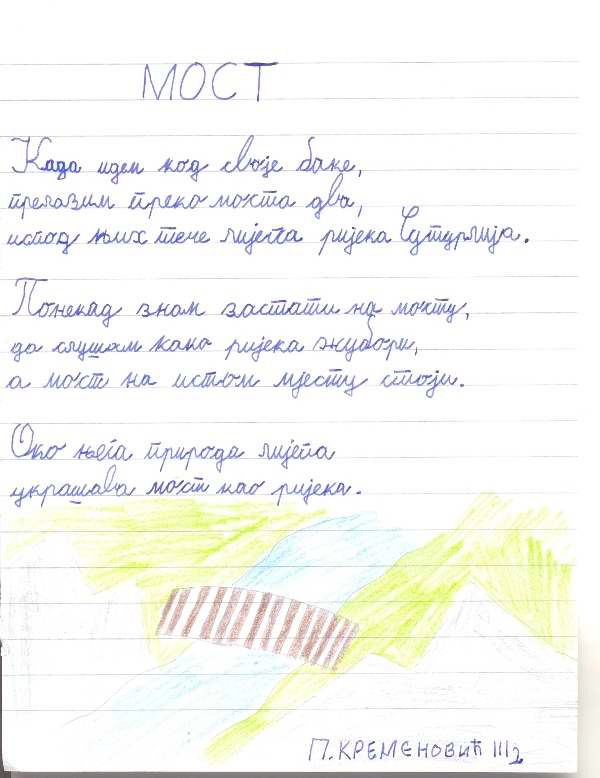 МОСТ
Када идем код своје баке,
прелазим преко моста два,
испод њих тече лијепа ријека Сутурлија.
Понекад знам застати на мосту,
да слушам како ријека жубори,
а мост на истом мјесту стоји.
Око њега природа лијепа
украшава мост као ријека.
П. КРЕМЕНОВИЋ III2